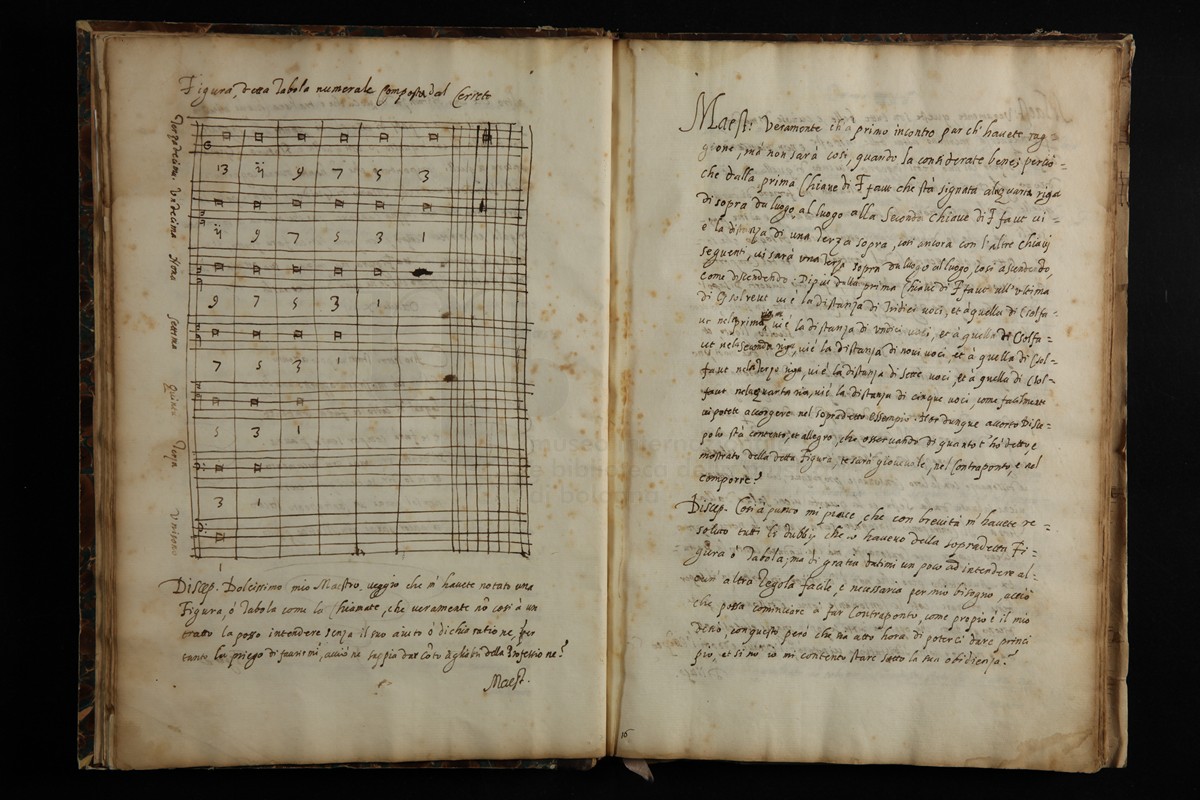 Figura, detta Tabola numerale Composta dal Cerreto
Terzadecima. Undecima Nona Settima Quinta Terza Unisono
13 11 9 7 5 3
11 9 7 5 3 1
9 7 5 3 1
7 5 3 1
5 3 1
3 1
1
Discep. Dolcissimo mio Maestro, veggio che m'havete notato una
Figura, ò Tabola come la chiamate, che veramente nõ così a un
tratto la posso intendere senza il suo aiuto ò dichiaratione, per
tanto la priego di favorirmi, acciò ne sappia dar cõto della Professione?
Maest.
Maest: Veramente ch'à primo incontro par ch'havete rag=
gione, mà non sarà così, quando la considerate bene; percio=
che dalla prima Chiave di F faut che stà signata alla quarta riga
di sopra da luogo al luogo alla Seconda chiave di F faut vi=
è la distanza di una Terza sopra, così ancora con l'altre chiavi
seguenti, vi sarà una terza sopra da luogo al luogo, così ascendendo,
come discendendo. Di più dalla prima Chiave di F faut all'ultima
di G solreut vi è la distanza di Tridici voci, et à quella di Csolfa=
ut nela prima riga, vi è la distanza di undici voci, et à quella di Csolfa=
ut nela seconda riga, vi è la distanza di nove voci, et à quella di Csol=
faut nela terza riga, vi è la distanza di sette voci, et à quella di Csol=
faut nela quarta riga, vi è la distanza di cinque voci, come facilmente
vi potete accorgere nel sopradetto Essempio. Hor dunque accorto Disce=
polo stà contento, et allegro, che osservando di quanto t'hò detto, e
mostrato della detta Figura, te sarà giovevole, nel Contraponto, e nel
comporre?
Discep. Così à punto mi piace, che con brevità m'havete re=
soluto tutti li dubbij che io havevo della sopradetta Fi=
gura ò Tabola; ma di gratia datimi un poco ad intendere al=
cun'altra Regola facile, e necessaria per mio bisogno, acciò
che possa cominciare à far Contraponto, come proprio è il mio
desio, con questo però che sia atto hora di poterci dare princi
pio, et si nò io mi contento stare sotto la sua obidienza?
16